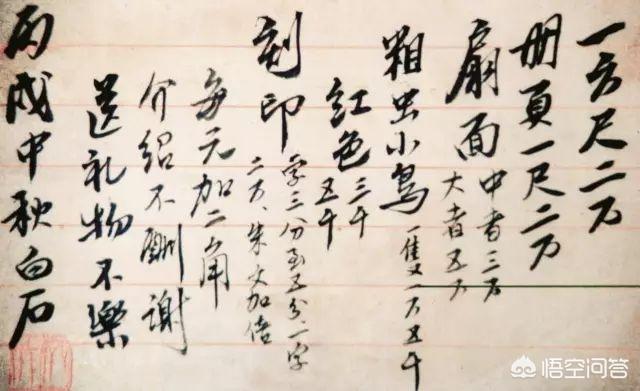 一方尺二万
册頁一尺二万
扇面中者三万
大者五万
粗虫小鳥一隻一万五千
紅色三千
五千
刻印字三分至五分一字
二万、朱文加倍
每元加二角
介紹不酬谢
送礼物不樂
丙戌中秋白石
悟空问答